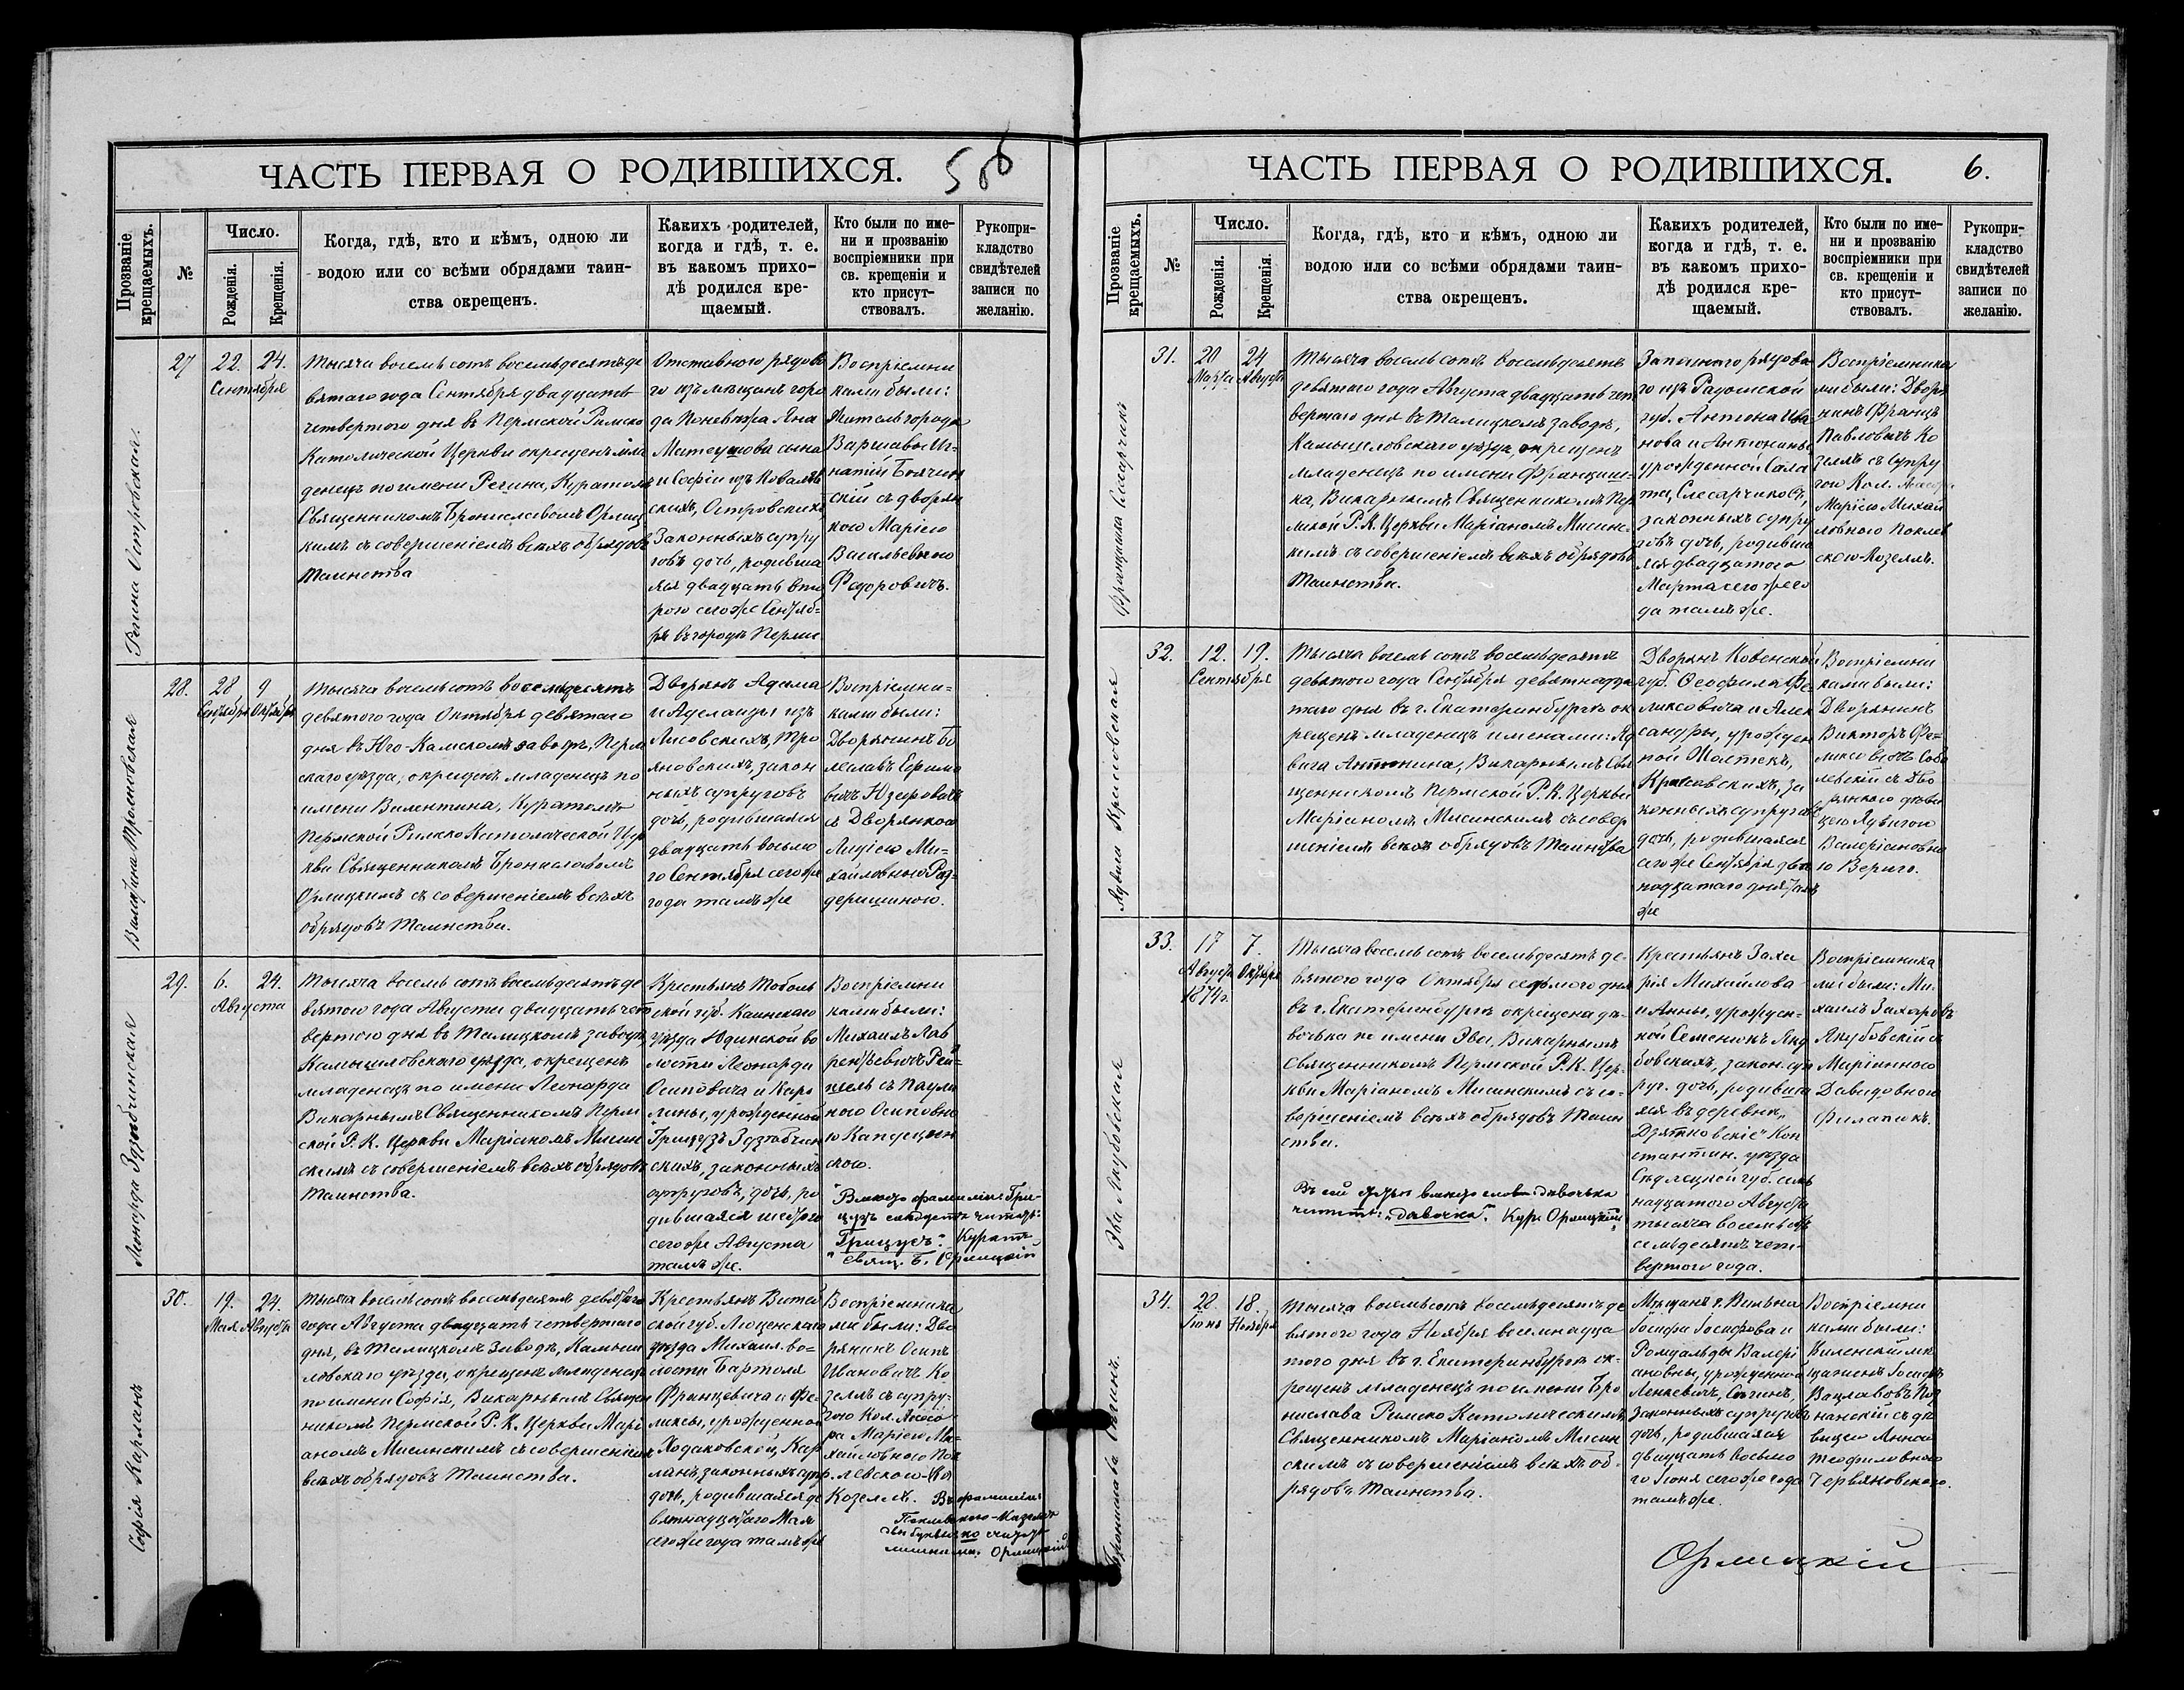 ЧАСТЬ ПЕРВАЯ О РОДИВШИХСЯ.
Прозваніе крещаемыхъ.
№
Число.
Рожденія.
Крещенія.
Когда, гдѣ, кто и кѣмъ, одною ли
водою или со всѣми обрядами таин-
ства окрещенъ.
Каковыхъ родителей,
когда и гдѣ, т. е.
въ какомъ прихо-
дѣ родился кре-
щаемый.
Кто были по име-
ни и прозванію
воспріемники при
св. крещеніи и
кто присут-
ствовалъ.
Рукопри-
кладство
свидѣтелей
записи по
желанію.
Регина Островская.
27
22. 24.
Сентября
Тысяча восемь сотъ восемьдесятъ де
вятаго года Сентября двадцать
четвертого дня въ Пермской Римско
Католической Церкви окрещенъ мла
денецъ по имени Регина, Куратомъ
Священникомъ Брониславомъ Орлиц
кимъ съ совершеніемъ всѣхъ обрядовъ
Таинства
Отставного рядово
го изъ мѣщанъ горо
да Поневѣжа Яна
Матеушова сына
и Софіи изъ Коваль
скихъ, Островскихъ
Законныхъ супру
говъ дочь, родивша
яся двадцать вто
рого сего же Сентяб-
ря въ городѣ Перми
Воспріемни
ками были:
Житель города
Варшавы Иг-
натій
скій съ дворян
кою Маріею
Васильевною
Федоровичъ.
Валентина Трояновская
28.
28 9
Сентября Октября
Тысяча восемьсотъ восемьдесятъ
девятого года Октября девятаго
дня въ Юго-Камскомъ заводѣ, Перм
скаго уѣзда, окрещенъ младенецъ по
имени Валентина, Куратомъ
Пермской Римско Католической Цер
кви Священникомъ Брониславомъ
Орлицкимъ съ совершеніемъ всѣхъ
обрядовъ Таинства.
Дворянъ Адама
и Аделаиды изъ
Лисовскихъ, Тро
яновскихъ, закон
ныхъ супруговъ
дочь, родившаяся
двадцать восьмо
го Сентября сего же
года тамъ же
Воспріемни-
ками были:
Дворянинъ Бо
леславъ Ефимо
вичъ Юзефовичъ
съ Дворянкою
Лидіею Ми-
хайловною Раз-
деришиною.
Леонарда
29.
6. 24.
Августа
Тысяча восемь сотъ восемьдесятъ де
вятого года Августа двадцать чет
вертого дня въ Талицкомъ заводѣ,
Камышловскаго уѣзда, окрещенъ
младенецъ по имени Леонарда
Викарнымъ Священникомъ Перм
ской Р. К. Церкви Маріаномъ Мисин
скимъ съ совершеніемъ всѣхъ обрядовъ
Таинства.
Крестьянъ Тоболь
ской губ. Каинскаго
уѣзда Юдинской во
лости Леонарда
Осиповича и Каро
лины, урожденной
скихъ, законныхъ
супруговъ, дочь, ро
дившаяся шестого
сего же Августа
тамъ же.
Воспріемни
ками были:
Михаилъ Лав
рентьевичъ Рей-
шель съ Паули
ною Осиповно
ю
скою.
"Вмѣсто фамиліи Гри-
цузъ слѣдуетъ читать:
Грицусъ". Куратъ
свящ. Б. Орлицкій
Софія Карланъ
30.
19. 24.
Мая. Августа
Тысяча восемьсотъ восемьдесятъ девятого
года Августа двадцать четвертаго
дня, въ Талицкомъ Заводѣ, Камыш
ловскаго уѣзда, окрещенъ младенецъ
по имени Софія, Викарнымъ Священ
никомъ Пермской Р. К. Церкви Марі
аномъ Мисинскимъ съ совершеніемъ
всѣхъ обрядовъ Таинства.
Крестьянъ Витеб
ской губ. Люценскаго
уѣзда Михаил. во-
лости Бартоля
Францевича и Фе-
ликсы, урожденной
Ходаковской, Кар
ланъ, законныхъ супр.
дочь, родившаяся де
вятнадцатаго Мая
сего же года тамъ же
Воспріемника
ми были: Дво
рянинъ Осипъ
Ивановичъ Ко
зеллъ съ супру-
гою Кол. Ассесо-
ра Маріею Ми-
хайловною Пок
левскою-Ко
Козеллъ. Въ фамиліи
Поклевскою-Козеллъ
двѣ буквы ко считать
лишними. Орлицкій
ЧАСТЬ ПЕРВАЯ О РОДИВШИХСЯ. 6.
Прозваніе крещаемыхъ.
№
Число.
Рожденія.
Крещенія.
Когда, гдѣ, кто и кѣмъ, одною ли
водою или со всѣми обрядами таин-
ства окрещенъ.
Какихъ родителей,
когда и гдѣ, т. е.
въ какомъ прихо-
дѣ родился кре-
щаемый.
Кто были по име-
ни и прозванію
воспріемники при
св. крещеніи и
кто присут-
ствовалъ.
Рукопри-
кладство
свидѣтелей
записи по
желанію.
Францишка Слесарчикъ
31.
20 24
Марта Августа
Тысяча восемь сотъ восемьдесятъ
девятого года Августа двадцать чет
вертаго дня въ Талицкомъ заводѣ,
Камышловскаго уѣзда, окрещенъ
младенецъ по имени Франциш-
ка, Викарнымъ Священникомъ Пер
мской Р. К. Церкви Маріаномъ Мисинс-
кимъ съ совершеніемъ всѣхъ обрядовъ
Таинства.
Запаснаго рядово-
го изъ Радомской
губ. Антона Ива
нова и Антонины
урожденной Сала
та, Слесарчиковъ,
законныхъ супру
говъ дочь, родивша
яся двадцатого
Марта сего же го
да тамъ же.
Воспріемника
ми были: Дворя
нинъ Францъ
Павловичъ Ко
зеллъ съ супру
гою Кол. Ассес.
Маріею Михай
ловною Поклев
скою-Козеллъ.
Ядвига Красовская
32.
12. 19.
Сентября
Тысяча восемь сотъ восемьдесятъ
девятого года Сентября девятнадца
таго дня въ г. Екатеринбургѣ ок
рещенъ младенецъ именами: Яд
вига Антонина, Викарнымъ Свя
щенникомъ Пермской Р. К. Церкви
Маріаномъ Мисинскимъ съ совер
шеніемъ всѣхъ обрядовъ Таинства
Дворянъ Ковенской
губ. Ѳеофила Фе-
ликсовича и Алек
сандры, урожден
ной
Красовскихъ, за
конныхъ супруговъ
дочь, родившаяся
сего же Сентября две
надцатаго дня тамъ
же
Воспріемни
ками были:
Дворянинъ
Викторъ Фе-
ликсовичъ Собо
левскій съ Дво
рянкою дѣви
цею Ядвигою
Валеріановно
ю Вериго.
Эва Якубовская
33.
17 7.
Августа Октября
1874 г.
Тысяча восемь сотъ восемьдесятъ де-
вятого года Октября седьмого дня
въ г. Екатеринбургѣ окрещена дѣ-
вочька по имени Эва, Викарнымъ
Священникомъ Пермской Р. К. Цер-
кви Маріаномъ Мисинскимъ съ со-
вершеніемъ всѣхъ обрядовъ Таин
ства.
Въ сей статьѣ вмѣсто слова дѣвочька
читать: „дѣвочка“. Кур. Орлицкій
Крестьянъ Заха
рія Михайлова
и Анны, урожден-
ной Семенюкъ Яку
бовскихъ, закон. суп
руг. дочь, родивша
яся въ деревнѣ „
Кон
стантин. уѣзда
Сѣдлецкой губ. сем
надцатого Августа
тысяча восемьсотъ
семьдесятъ чет-
вертого года.
Воспріемника
ми были: Ми-
хаилъ Захаровъ
Якубовскій съ
Маріанною
Давидовною
Филапикъ.
Бронислава
34.
28. 18.
Іюня Ноября
Тысяча восемьсотъ восемьдесятъ де
вятого года Ноября восемнадца
того дня въ г. Екатеринбургѣ ок-
рещенъ младенецъ по имени Бро
нислава Римско Католическимъ
Священникомъ Маріаномъ Мисин
скимъ съ совершеніемъ всѣхъ об-
рядовъ Таинства.
Мѣщанъ г. Вильна
Іосифа Іосифова и
Ромуальды Валері
ановны, урожденной
Ленкевичъ,
законныхъ супруговъ
дочь, родившаяся
двадцать восьмо
го Іюня сего же года
тамъ же.
Воспріемни
ками были:
Виленскій мѣ
щанинъ Іосифъ
Вацлавовъ Поз
нанскій съ дѣ
вицею Анною
Теофиловною
Червяковскою.
Орлицкій